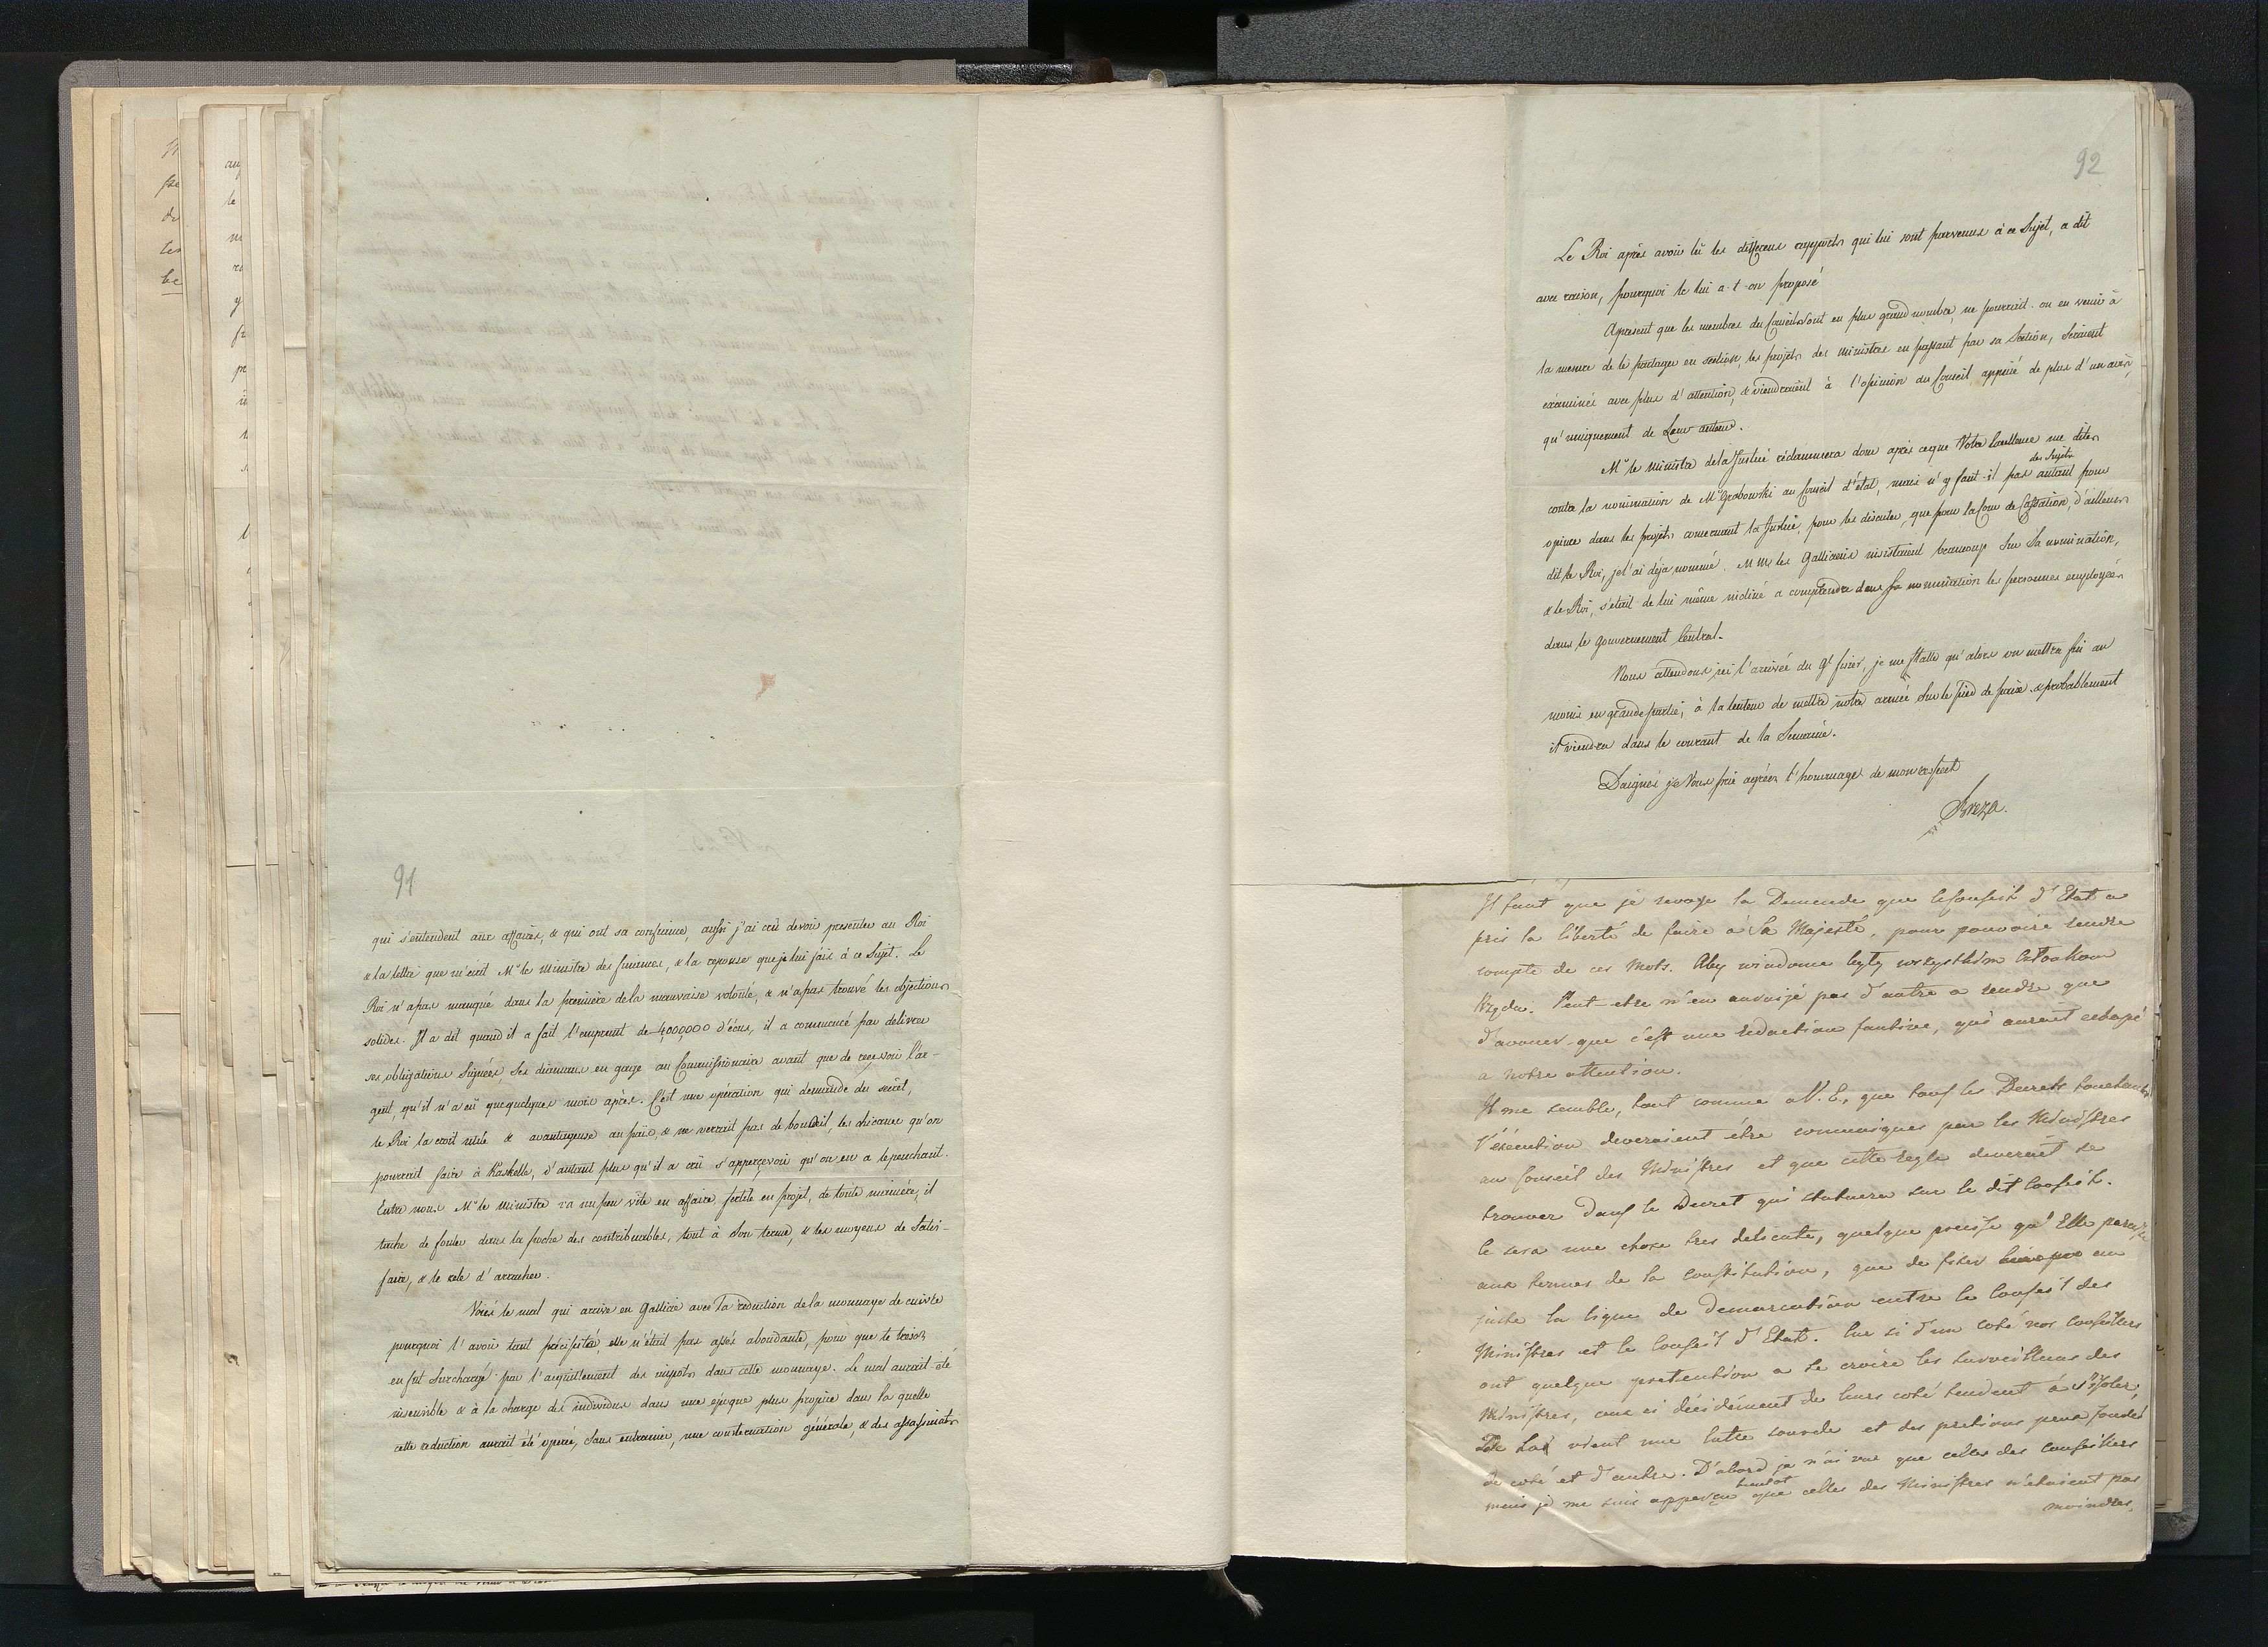 91
qui s'entendent aux affaires, & qui ont sa confiance, aussi j'ai crû devoir presenter au Roi
& la lettre que m'ecrit Mr le Ministre des finances, & la reponse que je lui fais à ce Sujet. Le
Roi n'a pas manqué dans la premiere de la mauvaise volonté, & n'a pas trouvé les objections
solides. Il a dit quand il a fait l'emprunt de 4,000,000 d'écus, il a commencé par delivrer
ses obligations Signées, Ses diamans en gage au Commissionaire avant que de recevoir l'ar-
gent, qu'il n'a eû que quelques mois après. C'est une opération qui demande du secret,
le Roi la croit utile & avantageuse au païs, & ne verrait pas de bon œil, les chicanes qu'on
pourrait faire à Kaskelle, d'autant plus qu'il a crû s'appercevoir qu'on en a le penchant.
Entre nous Mr le Ministre va un peu vite en affaire, fertile en projet, de toute maniere, il
tache de fouler dans la poche des contribuables, tout à Son terme, & les moyens de Satis-
faire, & le zele d'arracher.
Voici le mal qui arrive en Gallicie avec la réduction de la monnaye de cuivre
pourquoi l'avoir tant précipitée elle n'était pas assés abondante, pour que le tresor
en fut Surchargé par l'acquittement des impots dans cette monnaye. Le mal aurait été
insensible & à la charge des individus dans une époque plus propice dans la quelle
cette reduction aurait été operée, Sans entrainer, une consternation générale, & des assassinats
92
Le Roi après avoir lû les differens rapports qui lui sont parvenus à ce Sujet, a dit
avec raison, pourquoi le lui a-t-on proposé
Apresent que les membres du Conseil Sont en plus grand nombre, ne pourrait-on en venir à
la mesure de le partager en section, les projets des Ministres en passant par sa Section, Seraient
examinés avec plus d'attention, & viendraient à l'opinion du Conseil appuié de plus d'un avis,
qu'uniquement de Leur auteur.
Mr le Ministre de la Justice réclamera donc après ce que Votre Excellence me dites
contre la nomination de Mr Grabowski au Conseil d'état, mais n'y faut-il pas autant pour
des Sujets
opiner dans les projets concernant la Justice, pour les discuter, que pour la Cour de Cassation, d'ailleurs
dit le Roi, je l'ai déja nommé. MMrs les Galliciens insistaient beaucoup Sur Sa nomination,
& le Roi, s'etait de lui même incliné a comprendre dans Sa nomination les personnes employées
dans le gouvernement Central.
Nous attendons ici l'arrivée du Gl fiszer, je me flatte qu'alors on mettra fin au
moins en grande partie, à la lenteur de mettre notre armée Sur le pied de paix, & probablement
il viendra dans le courant de la Semaine.
Daignés je Vous prie agréer l'hommage de mon respect
Breza
Il faut que je revoye la Demande que le Conseil d'Etat a
pris la liberté de faire à Sa Majesté, pour pouvoir rendre
compte de ces mots. Aby wiadome były wszystkim Członkom
Rządu. Peut etre n'en auroisje pas d'autre a rendre que
d'avouer que c'est une redaction fautive, qui auroit echapé
a notre attention.
Il me semble, tout comme a V. E., que tous les Decrets touchant
l'éxécution deveroient étre communiques par les Ministres
au Conseil des Ministres et que cette regle deveroit se
trouver dans le Decret qui statuera sur le dit Conseil.
Ce sera une chose tres delicate, quelque precise qu'Elle paroisse
aux termes de la constitution, que de fixer au
juste la ligne de Demarcation entre le Conseil des
Ministres et le Conseil d'Etat. Car si d'un coté nos Conseillers
ont quelque pretention a se croire les surveillans des
Ministres, ceux ci décidément de leurs coté tendent á s'isoler.
De là vient une lutte sourde et des pretentions peux fondés
de coté et d'autre. D'abord je n'ai vue que celles des Conseillers
mais je me suis apperçu bientot que celles des Ministres n'etaient pas
moindres.